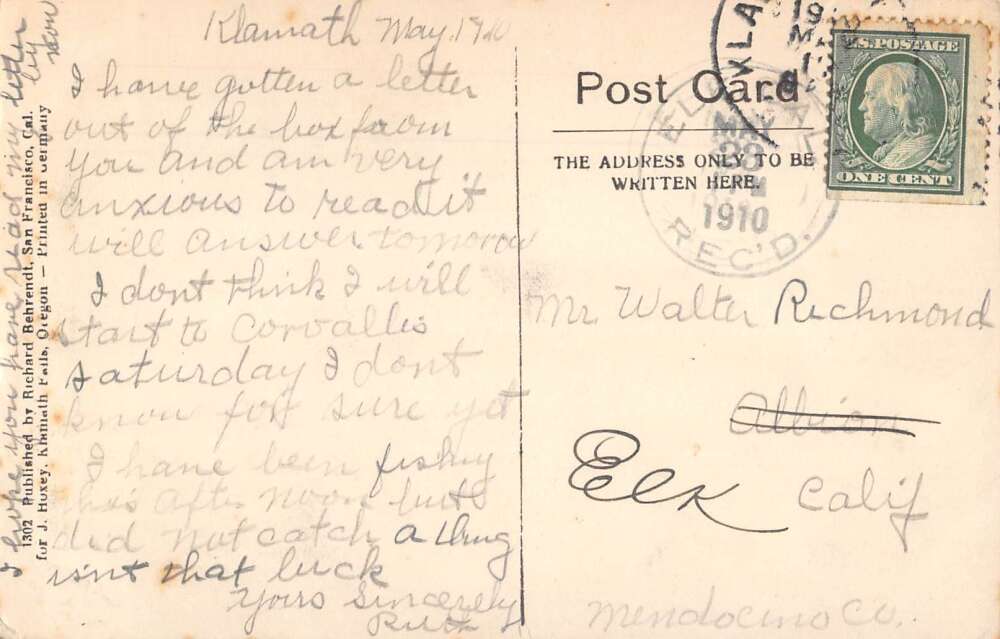 Klamath May. 1910
I have gotten a letter
out of the box from
you and am very
anxious to read it
will answer tomorow
I dont think I will
start to Corvallis
saturday I dont
know for sure yet
I have been fishing
this after noon but
did not catch a thing
isnt that luck
Yours Sincerely
I hope you have read my letter
by now
1302 Published by Richard Behrendt, San Francisco, Cal.
for J. Huxey, Klamath Falls, Oregon — Printed in Germany
Post Card
THE ADDRESS ONLY TO BE
WRITTEN HERE.
MAY
1910
REC'D.
U.S. POSTAGE
ONE CENT
Mr Walter Richmond
Albion
Elk Calif
Mendocino Co.